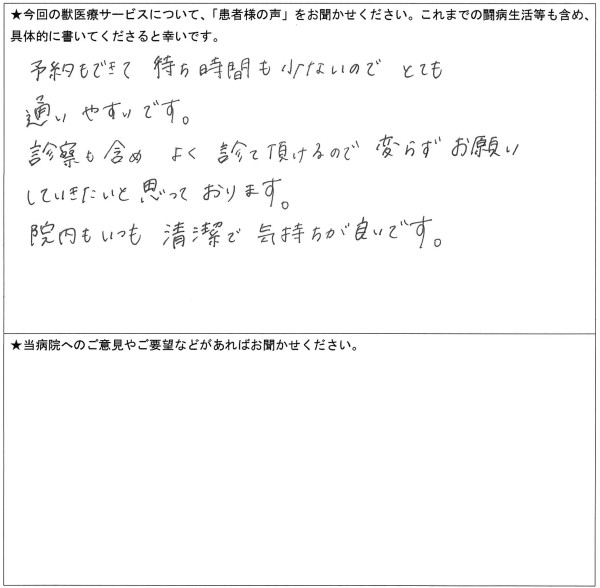 ★今回の獣医療サービスについて、「患者様の声」をお聞かせください。これまでの闘病生活等も含め、
具体的に書いてくださると幸いです。
予約もできて 待ち時間も少ないので とても
通い やすいです。
診察も含め よく 診て頂けるので 変らず お願い
していきたいと 思って おります。
院内もいつも 清潔で 気持ちが良いです。
★当病院へのご意見やご要望などがあればお聞かせください。